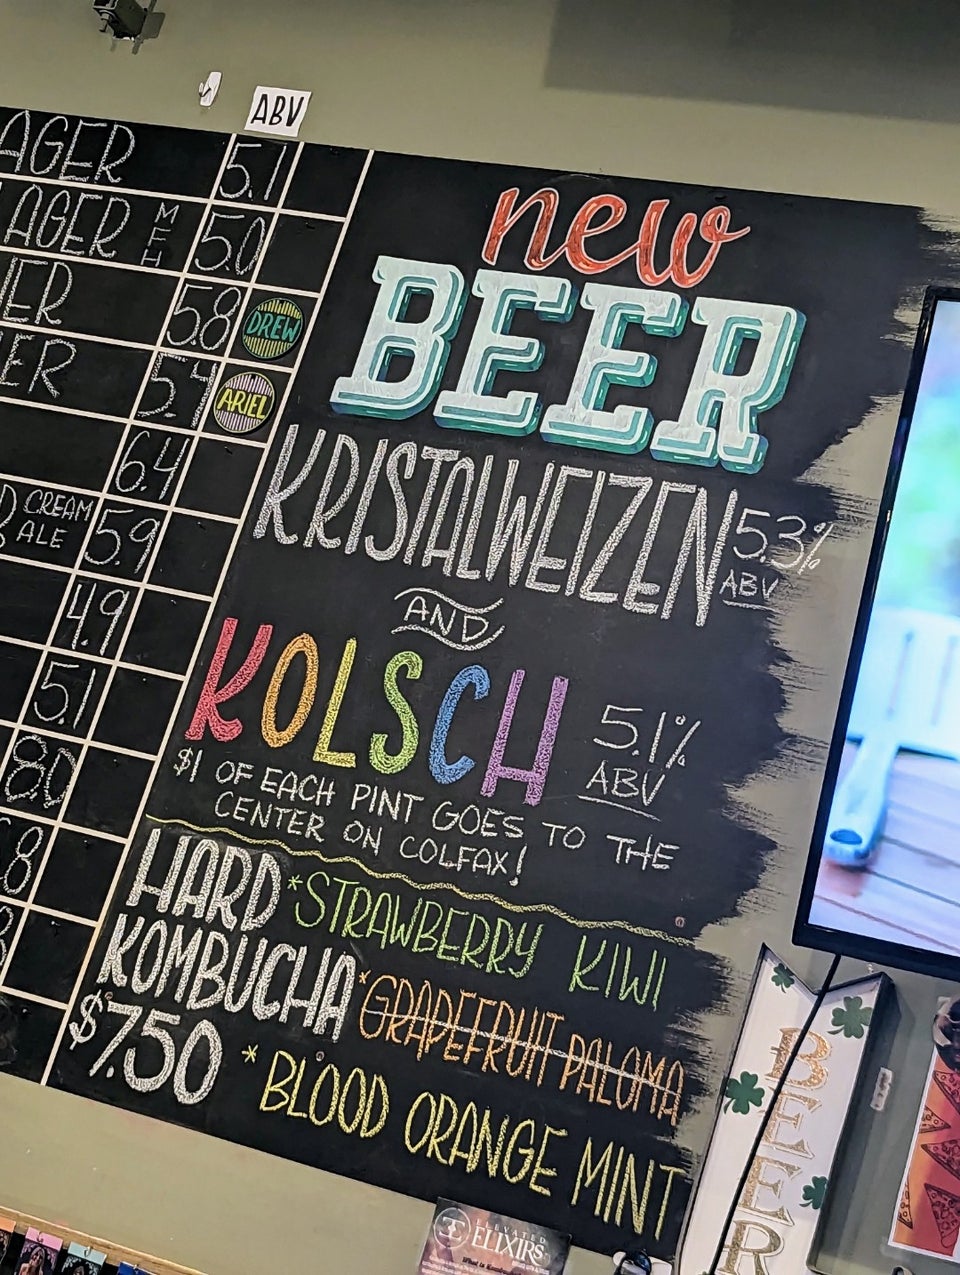 ABV
AGER 5.1
AGER MEH 5.0
ER 5.8 DREW
ER 5.4 ARIEL
6.4
CREAM
ALE 5.9
4.9
5.1
8.0
8
new
BEER
KRISTALWEIZEN 5.3%
ABV
AND
KOLSCH 5.1%
ABV
$1 OF EACH PINT GOES TO THE
CENTER ON COLFAX!
HARD *STRAWBERRY KIWI
KOMBUCHA *GRAPEFRUIT PALOMA
$7.50 *BLOOD ORANGE MINT
BEER
ELEVATED
ELIXIRS